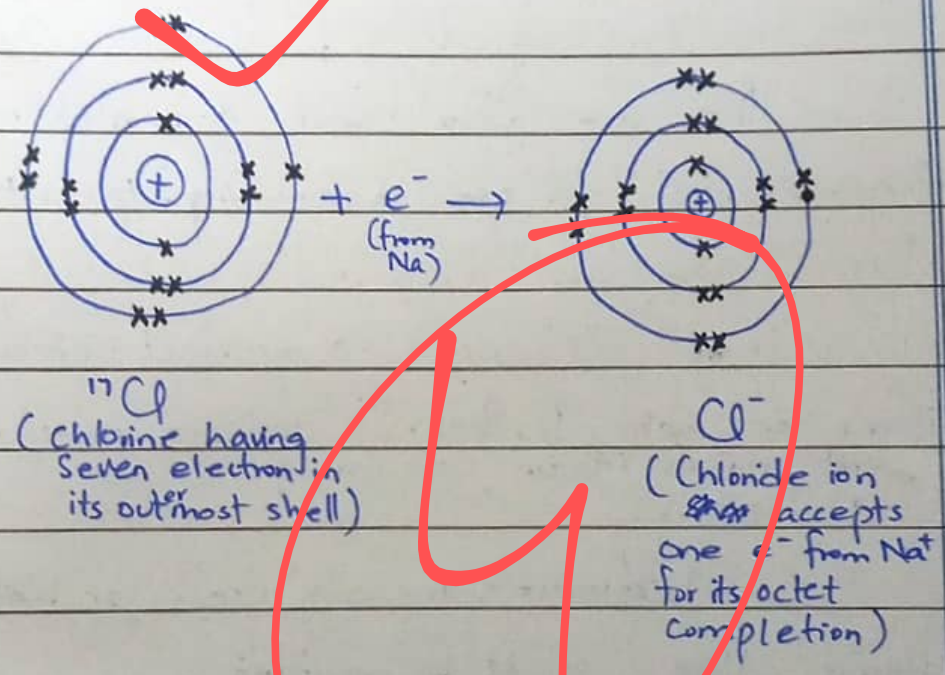 + e⁻ →
(from
Na)
¹⁷Cl
(Chlorine having
Seven electron in
its outermost shell)
Cl⁻
(Chloride ion
accepts
one e⁻ from Na⁺
for its octet
completion)
4